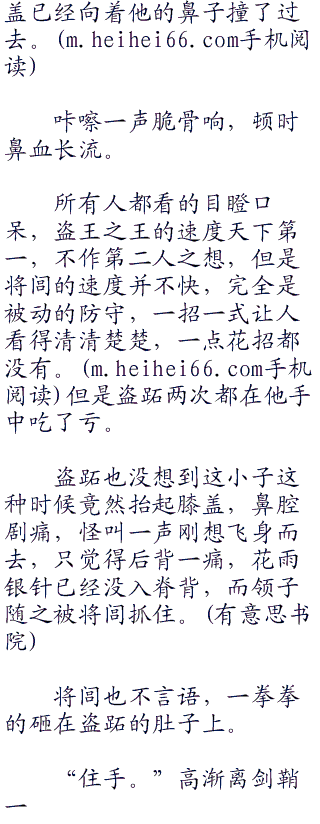 盖已经向着他的鼻子撞了过
去。(m.heihei66.com手机阅
读)
咔嚓一声脆骨响，顿时
鼻血长流。
所有人都看的目瞪口
呆，盗王之王的速度天下第
一，不作第二人之想，但是
将闾的速度并不快，完全是
被动的防守，一招一式让人
看得清清楚楚，一点花招都
没有。(m.heihei66.com手机
阅读)但是盗跖两次都在他手
中吃了亏。
盗跖也没想到这小子这
种时候竟然抬起膝盖，鼻腔
剧痛，怪叫一声刚想飞身而
去，只觉得后背一痛，花雨
银针已经没入脊背，而领子
随之被将闾抓住。(有意思书
院)
将闾也不言语，一拳拳
的砸在盗跖的肚子上。
“住手。”高渐离剑鞘
一